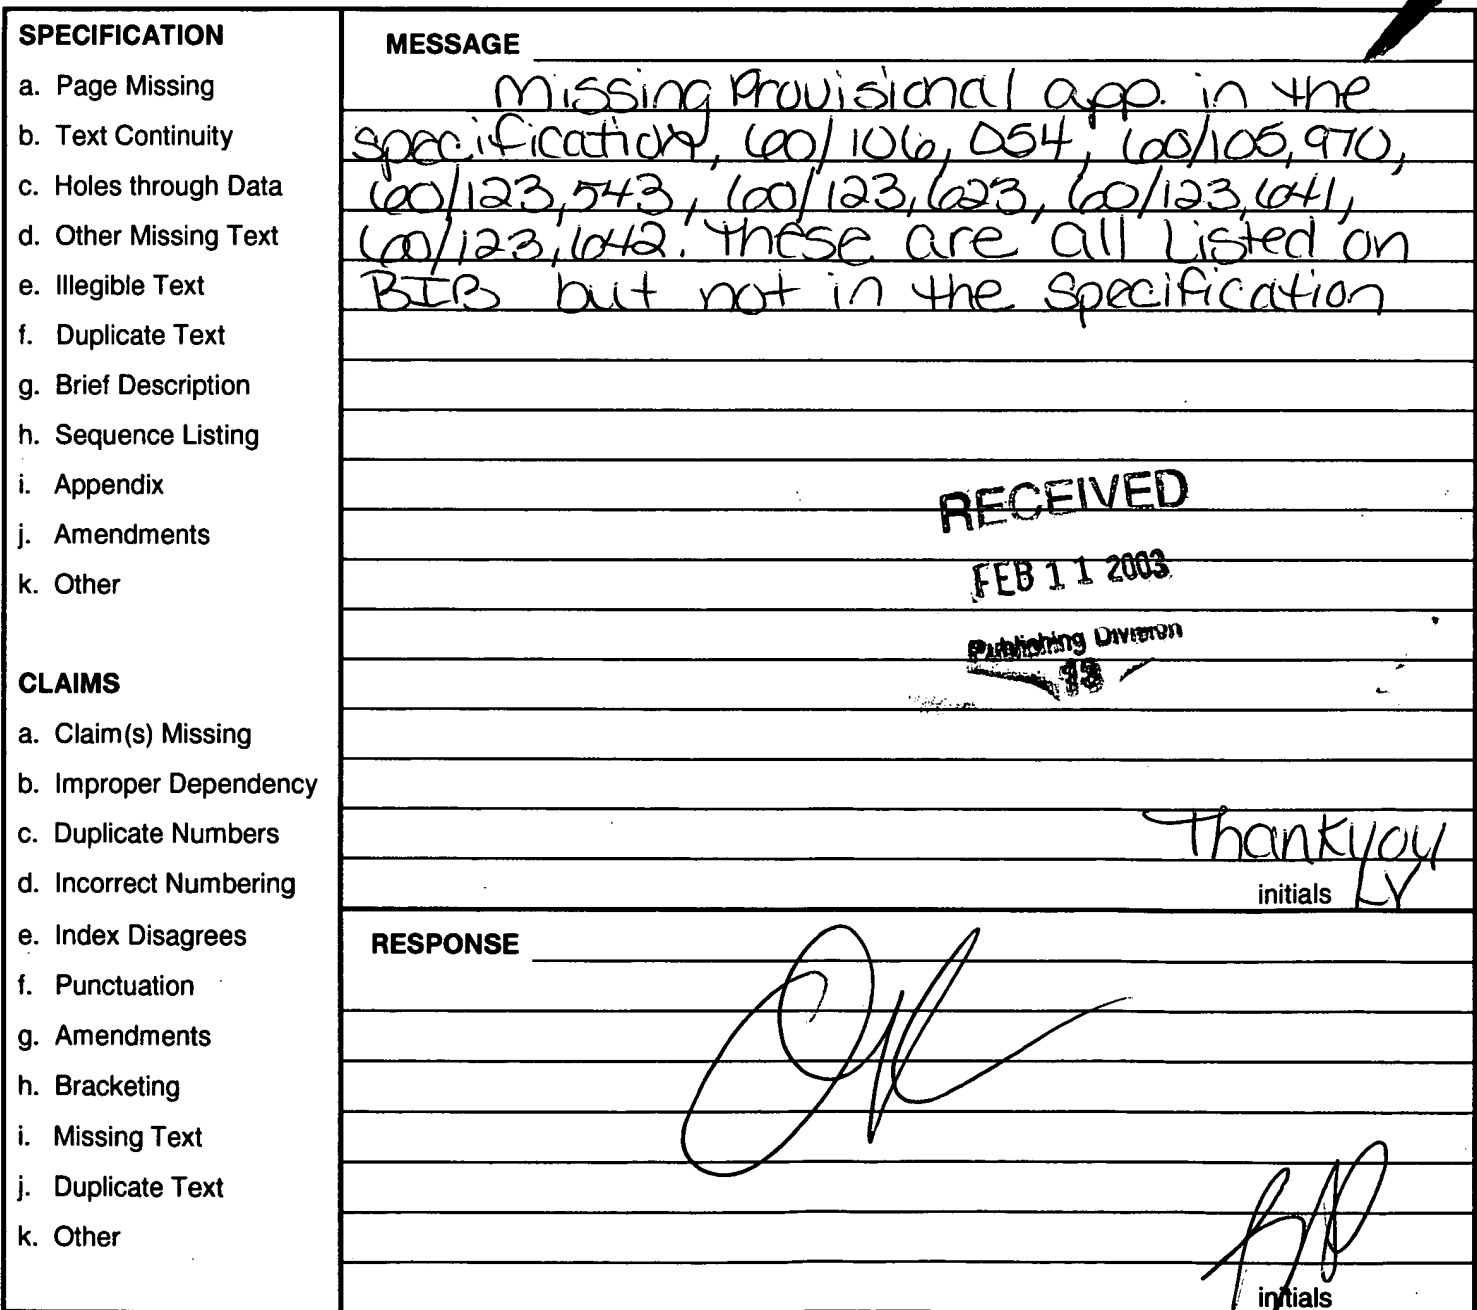 SPECIFICATION
a. Page Missing
b. Text Continuity
c. Holes through Data
d. Other Missing Text
e. Illegible Text
f. Duplicate Text
g. Brief Description
h. Sequence Listing
i. Appendix
j. Amendments
k. Other
CLAIMS
a. Claim(s) Missing
b. Improper Dependency
c. Duplicate Numbers
d. Incorrect Numbering
e. Index Disagrees
f. Punctuation
g. Amendments
h. Bracketing
i. Missing Text
j. Duplicate Text
k. Other
MESSAGE
Missing Provisional app. in the
specification, 60/106,054, 60/105,970,
60/123,543, 60/123,623, 60/123,641,
60/123,642. These are all Listed on
BIB but not in the Specification
RECEIVED
FEB 11 2003
Publishing Division
13
Thankyou
initials LY
RESPONSE
OK
initials